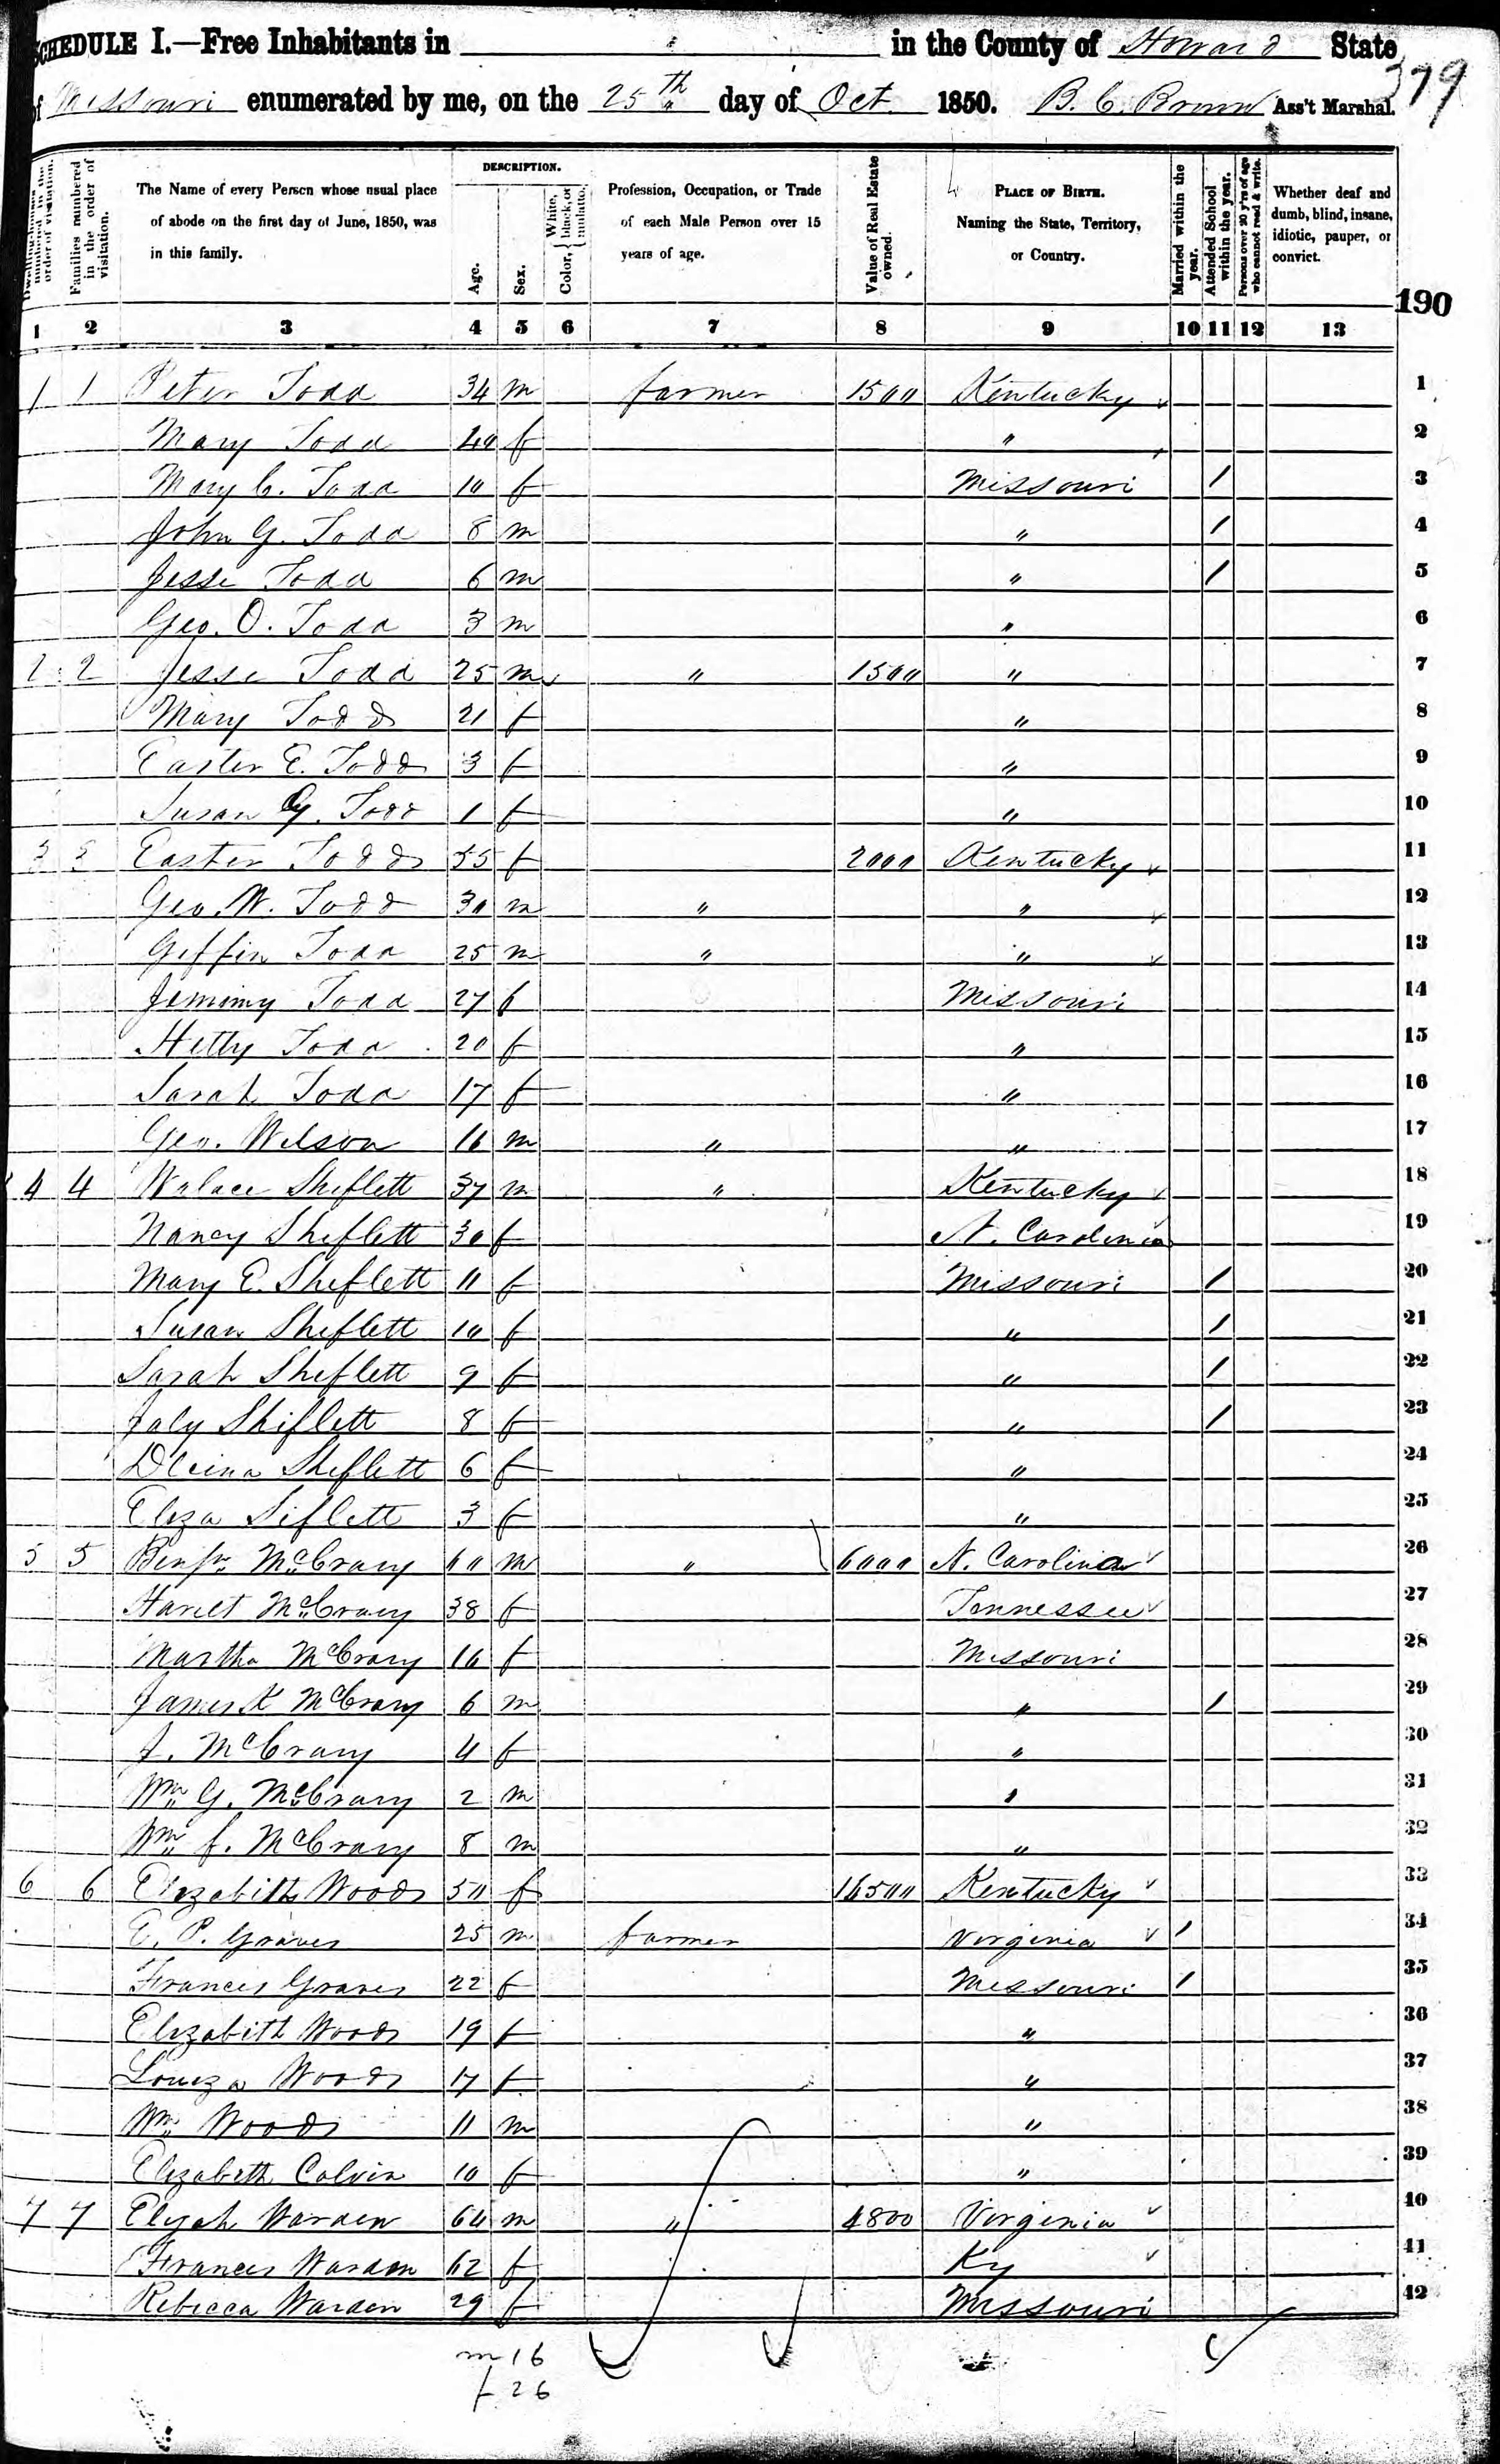 SCHEDULE I.—Free Inhabitants in in the County of Howard State
of Missouri enumerated by me, on the 25th day of Oct 1850. B. C. Brown Ass't Marshal.
379
Dwelling-houses numbered in the order of visitation.
Families numbered in the order of visitation.
The Name of every Person whose usual place of abode on the first day of June, 1850, was in this family.
DESCRIPTION.
Age.
Sex.
Color, White, black, or mulatto.
Profession, Occupation, or Trade of each Male Person over 15 years of age.
Value of Real Estate owned.
PLACE OF BIRTH. Naming the State, Territory, or Country.
Married within the year.
Attended School within the year.
Persons over 20 y'rs of age who cannot read & write.
Whether deaf and dumb, blind, insane, idiotic, pauper, or convict.
190
1 2 3 4 5 6 7 8 9 10 11 12 13
1 1 Peter Todd 34 m farmer 1500 Kentucky 1
Mary Todd 40 f " 2
Mary C. Todd 10 f Missouri / 3
John G. Todd 8 m " / 4
Jesse Todd 6 m " / 5
Geo. O. Todd 3 m " 6
2 2 Jesse Todd 25 m " 1500 " 7
Mary Todd 21 f " 8
Easter E. Todd 3 f " 9
Susan G. Todd 1 f " 10
3 3 Easter Todd 55 f 2000 Kentucky 11
Geo. W. Todd 30 m " " 12
Giffin Todd 25 m " " 13
Jemimy Todd 27 f Missouri 14
Hetty Todd 20 f " 15
Sarah Todd 17 f " 16
Geo. Wilson 16 m " " 17
4 4 Walace Sheflett 37 m " Kentucky 18
Nancy Sheflett 30 f N. Carolina 19
Mary E. Sheflett 11 f Missouri / 20
Susan Sheflett 10 f " / 21
Sarah Sheflett 9 f " / 22
July Shiflett 8 f " / 23
Sheflett 6 f " 24
Eliza Siflett 3 f " 25
5 5 Benjn McCrary 60 m " 6000 N. Carolina 26
Hariet McCrary 38 f Tennessee 27
Martha McCrary 16 f Missouri 28
James K McCrary 6 m " / 29
J. McCrary 4 f " 30
Wm G. McCrary 2 m " 31
Wm J. McCrary 8 m " 32
6 6 Elizabeth Woods 50 f 16500 Kentucky 33
E. P. Graves 25 m farmer Virginia / 34
Frances Graves 22 f Missouri / 35
Elizabeth Woods 19 f " 36
Louiza Woods 17 f " 37
Wm Woods 11 m " 38
Elizabeth Colvin 10 f " 39
7 7 Elijah Warden 64 m " 4800 Virginia 40
Frances Warden 62 f Ky 41
Rebecca Warden 29 f Missouri 42
m 16
f 26